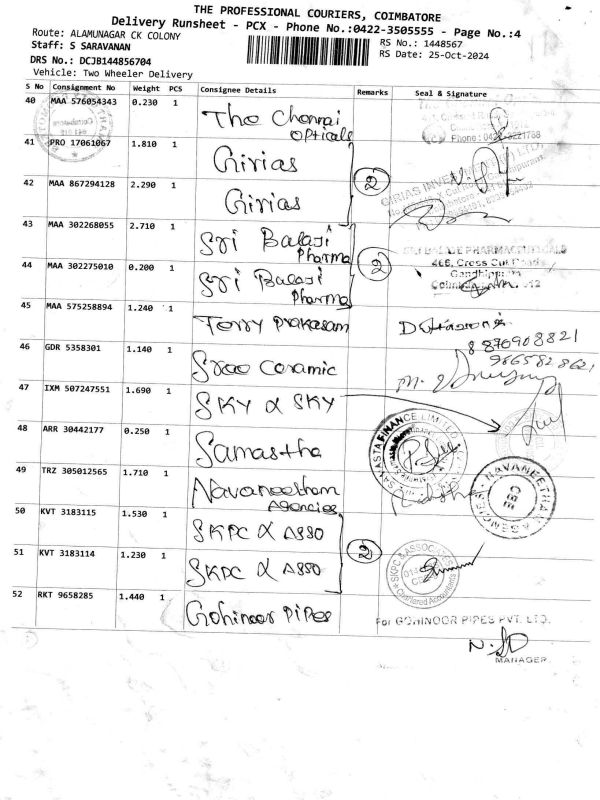 THE PROFESSIONAL COURIERS, COIMBATORE
Delivery Runsheet - PCX - Phone No.:0422-3505555 - Page No.:4
Route: ALAMUNAGAR CK COLONY
RS No.: 1448567
Staff: S SARAVANAN
RS Date: 25-Oct-2024
DRS No.: DCJB144856704
Vehicle: Two Wheeler Delivery
S No Consignment No Weight PCS Consignee Details Remarks Seal & Signature
40 MAA 576054343 0.230 1 The Chennai Opticals
41 PRO 17061067 1.810 1 Girias
2
42 MAA 867294128 2.290 1 Girias
43 MAA 302268055 2.710 1 Sri Balaji Pharma
2
SRI BALAJI PHARMACEUTICALS
466, Cross Cut Road
Gandhipuram
44 MAA 302275010 0.200 1 Sri Balaji Pharma
45 MAA 575258894 1.240 1 Terry Prakasam
8870908821
46 GDR 5358301 1.140 1 Sree Ceramic
9865828621
47 IXM 507247551 1.690 1 SKY & SKY
48 ARR 30442177 0.250 1 Samastha
FINANCE LIMITED
49 TRZ 305012565 1.710 1 Navaneetham Agencies
NAVANEETHAM AGENCIES
CBE
50 KVT 3183115 1.530 1 SKPC & ASSO
2
51 KVT 3183114 1.230 1 SKPC & ASSO
SKPC & ASSOCIATES
Chartered Accountants
52 RKT 9658285 1.440 1 Gohinoor Pipes
For GOHINOOR PIPES PVT. LTD.
MANAGER